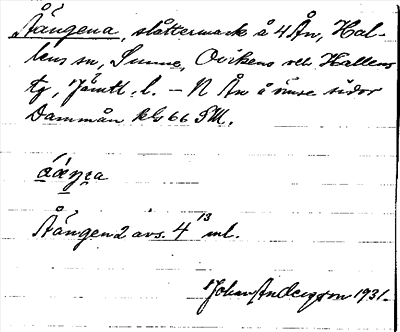 Åängena, slåttermark å 4 Ån, Hal-
lens sn, Sunne, Ovikens och Hallens
tg, Jämtl. l. – N Ån å ömse sidor
Dammån kbl 66 SM.
Åängena avs. 4 13 ml.
Johan Anderzon 1931.